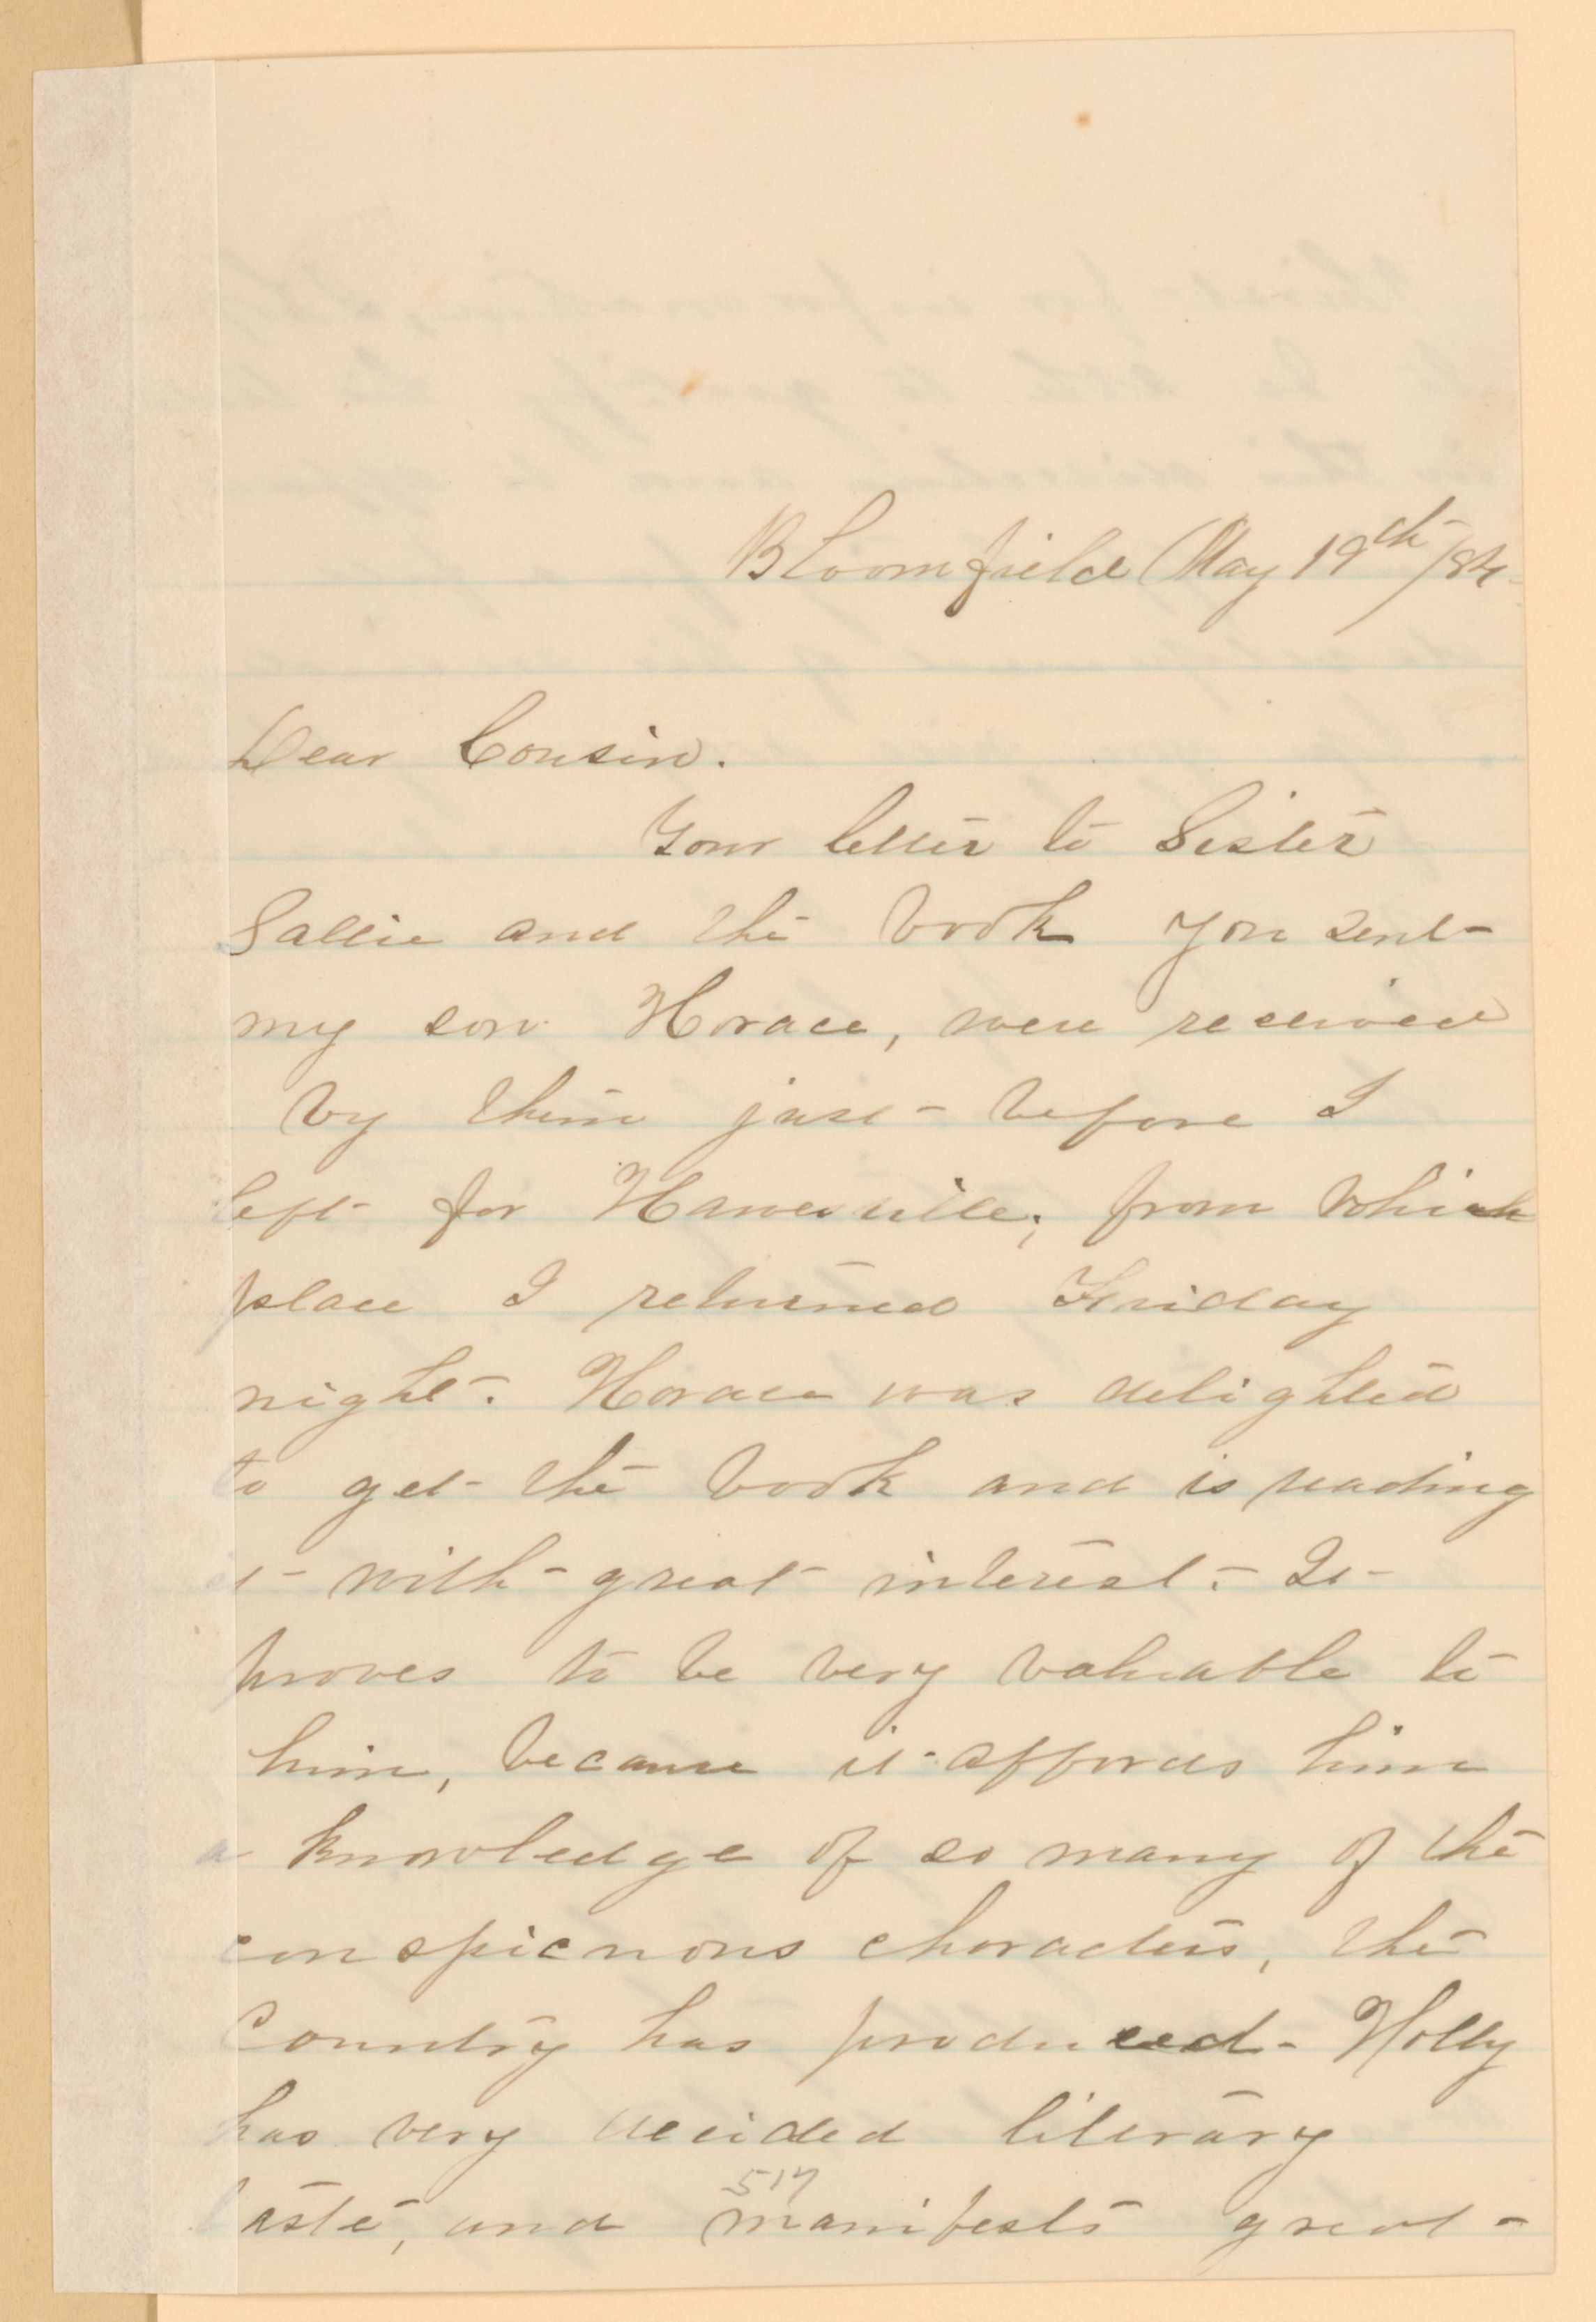 Bloomfield May 19th /84
Dear Cousin.
Your letter to Sister
Sallie and the book you sent
my son Horace, were received
by them just before I
left for Hawesville; from which
place I returned Friday
night. Horace was delighted
to get the book and is reading
it with great interest. It
proves to be very valuable to
him, because it affords him
a knowledge of so many of the
conspicuous characters, the
Country has produced. Holly
has very decided literary
taste, and manifests great
517